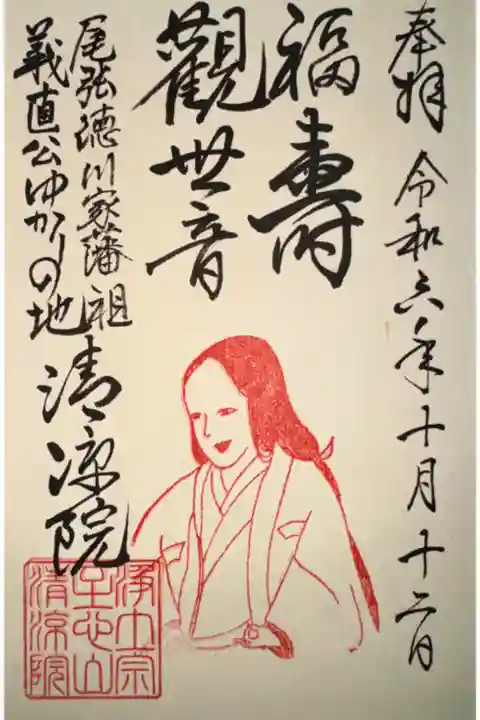 奉拝 令和六年十月十二日
福壽
觀世音
尾張徳川家藩祖
義直公ゆかりの地
清涼院
浄土宗
至心山
清涼院